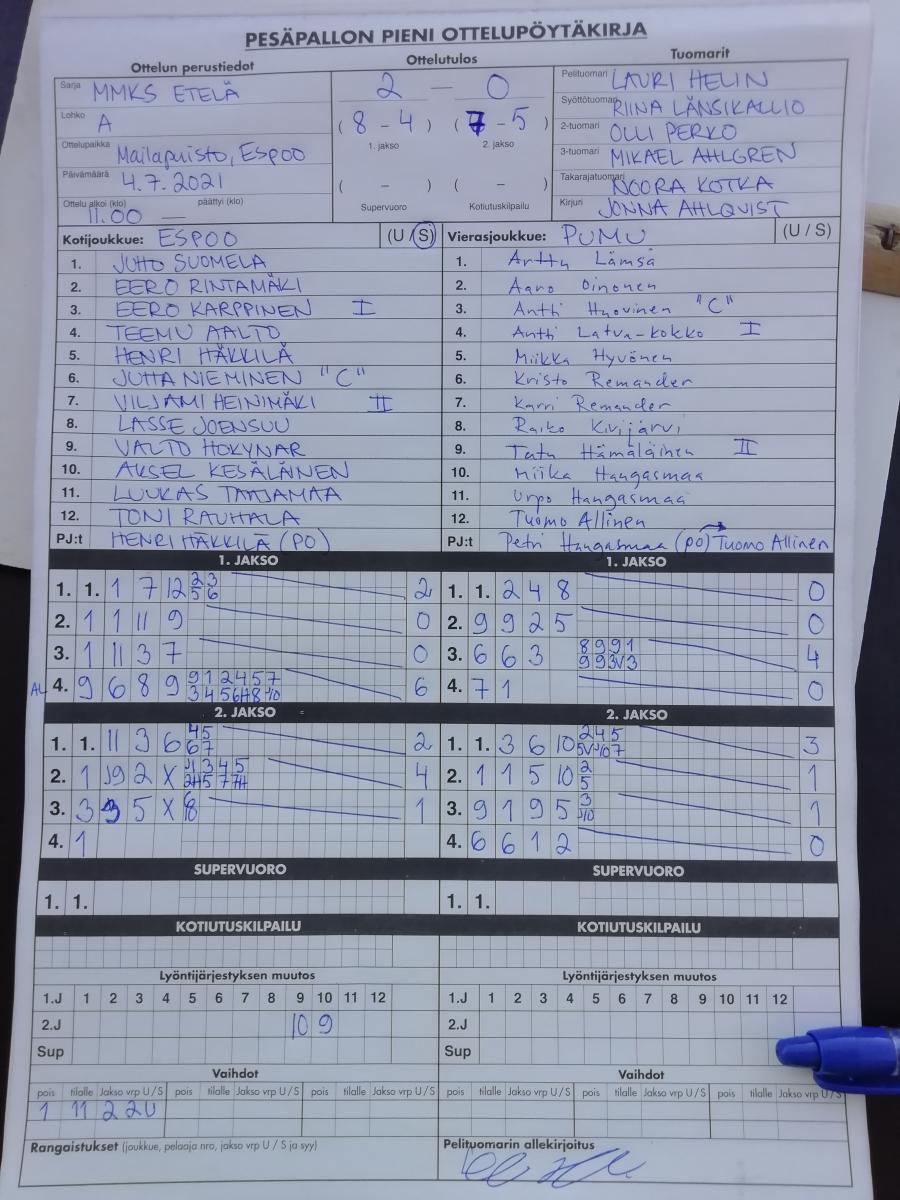 PESÄPALLON PIENI OTTELUPÖYTÄKIRJA
Ottelun perustiedot
Ottelutulos
Tuomarit
Sarja MMKS ETELÄ
Lohko A
Ottelupaikka Mailapuisto, Espoo
Päivämäärä 4.7.2021
Ottelu alkoi (klo) 11.00 — päättyi (klo)
2 — 0
( 8 - 4 ) ( 7 - 5 )
1. jakso 2. jakso
( - ) ( - )
Supervuoro Kotiutuskilpailu
Pelituomari LAURI HELIN
Syöttötuomari RIINA LÄNSIKALLIO
2-tuomari OLLI PERKO
3-tuomari MIKAEL AHLGREN
Takarajatuomari NOORA KOTKA
Kirjuri JONNA AHLQVIST
Kotijoukkue: ESPOO (U / S)
1. JUHO SUOMELA
2. EERO RINTAMÄKI
3. EERO KARPPINEN I
4. TEEMU AALTO
5. HENRI HÄKKILÄ
6. JUHA NIEMINEN "C"
7. VILJAMI HEINIMÄKI II
8. LASSE JOENSUU
9. VALTO HOKYNAR
10. AKSEL KESÄLÄINEN
11. LUUKAS TARJAMAA
12. TONI RAUHALA
PJ:t HENRI HÄKKILÄ (PO)
Vierasjoukkue: PUMU (U / S)
1. Arttu Lämsä
2. Aaro Oinonen
3. Antti Huovinen "C"
4. Antti Latva-Kokko I
5. Miikka Hyvönen
6. Kristo Remander
7. Karri Remander
8. Raiko Kivijärvi
9. Tatu Hämäläinen II
10. Miika Hangasmaa
11. Urpo Hangasmaa
12. Tuomo Allinen
PJ:t Petri Hangasmaa (PO) Tuomo Allinen
1. JAKSO
1. 1. 1 7 12 2 3 2
5 6
2. 1 1 11 9 0
3. 1 11 3 7 0
4. 9 6 8 9 9 1 2 4 5 7 6
1. JAKSO
1. 1. 2 4 8 0
2. 9 9 2 5 0
3. 6 6 3 8 9 9 1 4
4. 7 1 0
2. JAKSO
1. 1. 11 3 6 4 5 2
6 7
2. 1 2 X 4
3. 3 5 X 1
4. 1
2. JAKSO
1. 1. 3 6 10 2 4 5 3
2. 1 1 5 10 2 1
5
3. 9 1 9 5 3 1
4. 6 6 1 2 0
SUPERVUORO
1. 1.
SUPERVUORO
1. 1.
KOTIUTUSKILPAILU
KOTIUTUSKILPAILU
Lyöntijärjestyksen muutos
1.J 1 2 3 4 5 6 7 8 9 10 11 12
2.J 10 9
Sup
Lyöntijärjestyksen muutos
1.J 1 2 3 4 5 6 7 8 9 10 11 12
2.J
Sup
Vaihdot
pois tilalle Jakso vrp U / S pois tilalle Jakso vrp U / S pois tilalle Jakso vrp U / S
1 11 2 2U
Vaihdot
pois tilalle Jakso vrp U / S pois tilalle Jakso vrp U / S pois tilalle Jakso vrp U / S
Rangaistukset (joukkue, pelaaja nro, jakso vrp U / S ja syy)
Pelituomarin allekirjoitus